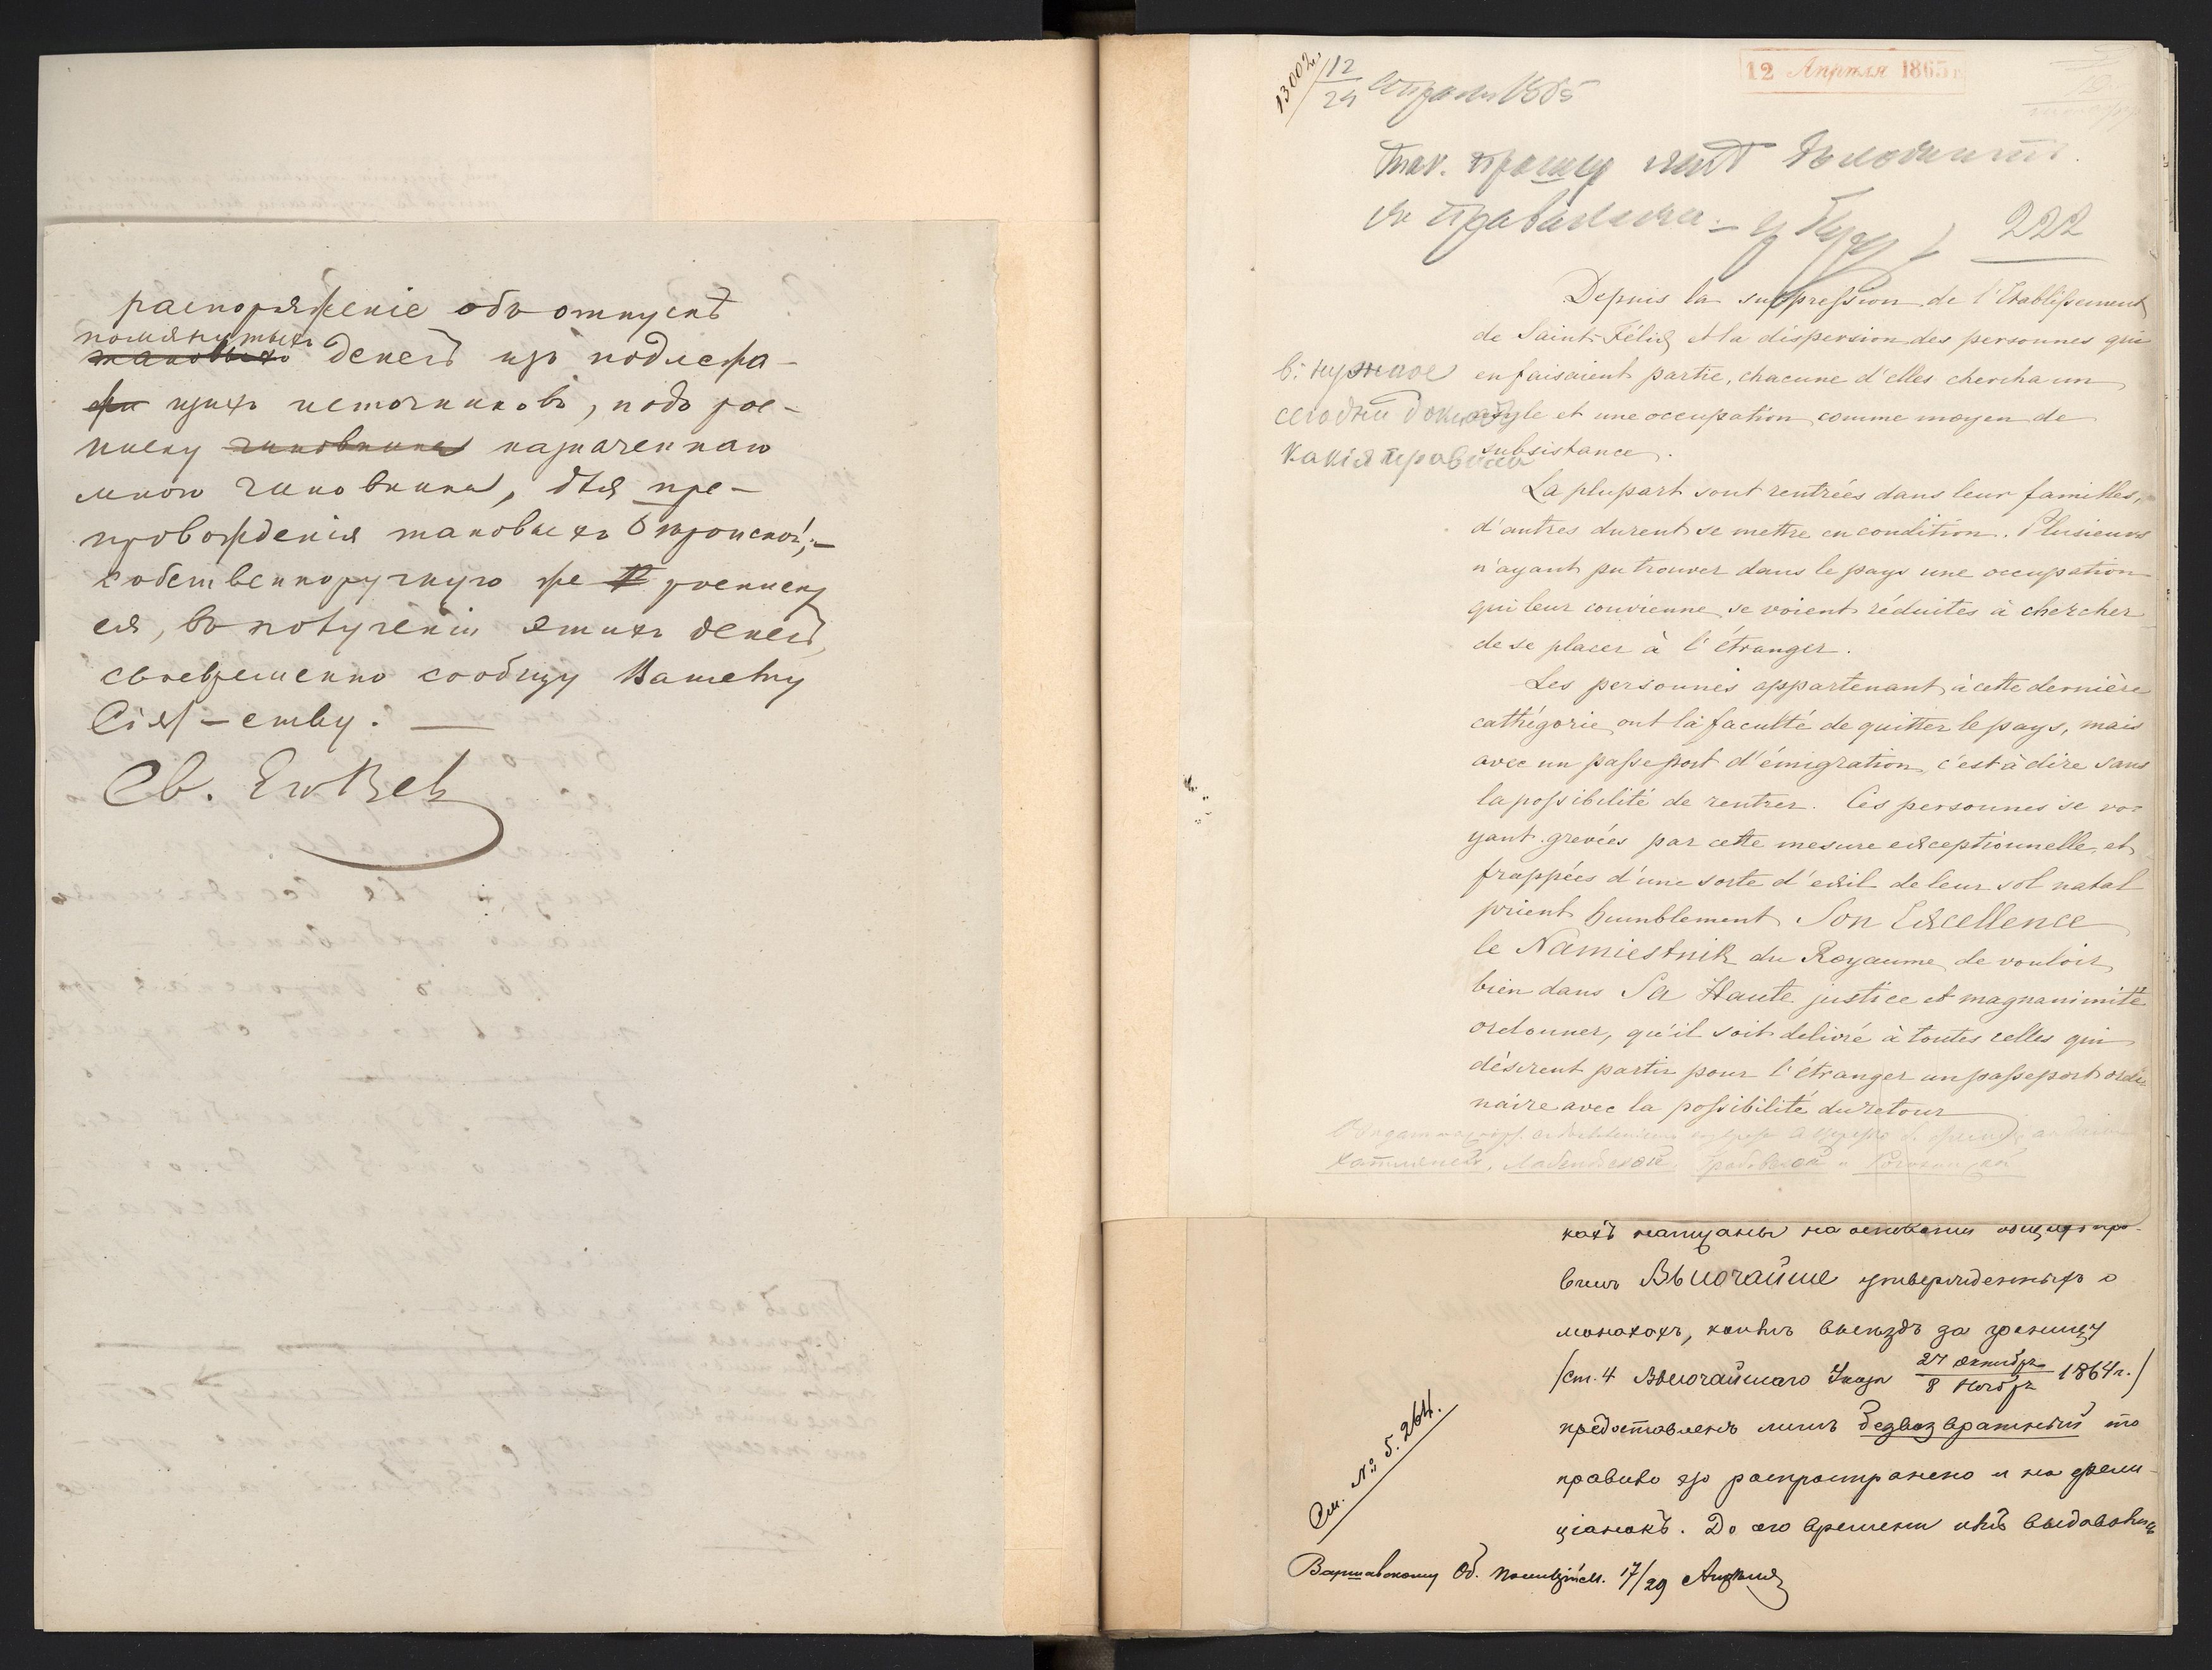 распоряженіе объ отпускѣ
помянутыхъ
таковыхъ денегъ изъ подлежа-
щихъ источниковъ, подъ рос-
писку чиновника назначеннаго
мною чиновника, для пре-
провожденія таковыхъ
собственноручную же росписку
ея, въ полученіи этихъ денегъ,
своевременно сообщу Вашему
Сіят-ству. —
13002.
12/24 Апрѣля 1865
12 Апрѣля 1865 г.
222
Depuis la suppression de l'Etablissement
de Saint-Félix et la dispersion des personnes qui
en faisaient partie, chacune d'elles chercha un
asyle et une occupation comme moyen de
subsistance.
В. нужное
сегодня
какія правила
La plupart sont rentrées dans leur familles,
d'autres durent se mettre en condition. Plusieurs
n'ayant pu trouver dans le pays une occupation
qui leur convienne, se voient réduites à chercher
de se placer à l'étranger.
Les personnes appartenant à cette dernière
cathégorie ont la faculté de quitter le pays, mais
avec un passeport d'émigration, c'est à dire sans
la possibilité de rentrer. Ces personnes se vo-
yant grevées par cette mesure exceptionnelle, et
frappées d'une sorte d'exil de leur sol natal
prient humblement Son Excellence
le Namiestnik du Royaume de vouloir
bien dans Sa Haute justice et magnanimité
ordonner, qu'il soit delivré à toutes celles qui
désirent partir pour l'étranger un passeport ordi-
naire avec la possibilité du retour
на основаніи общихъ пра-
вилъ Высочайше утвержденныхъ о
монахахъ, коимъ выѣздъ за границу
(ст. 4 Высочайшаго Указа 27 Октября/8 Ноября 1864 г.)
предоставленъ лишь безвозвратный то
правило это распространено и на фели-
ціанокъ. До сего времени имъ выдавались
См. № 5.264.
Варшавскому Об. Полиційм. 17/29 Апрѣля